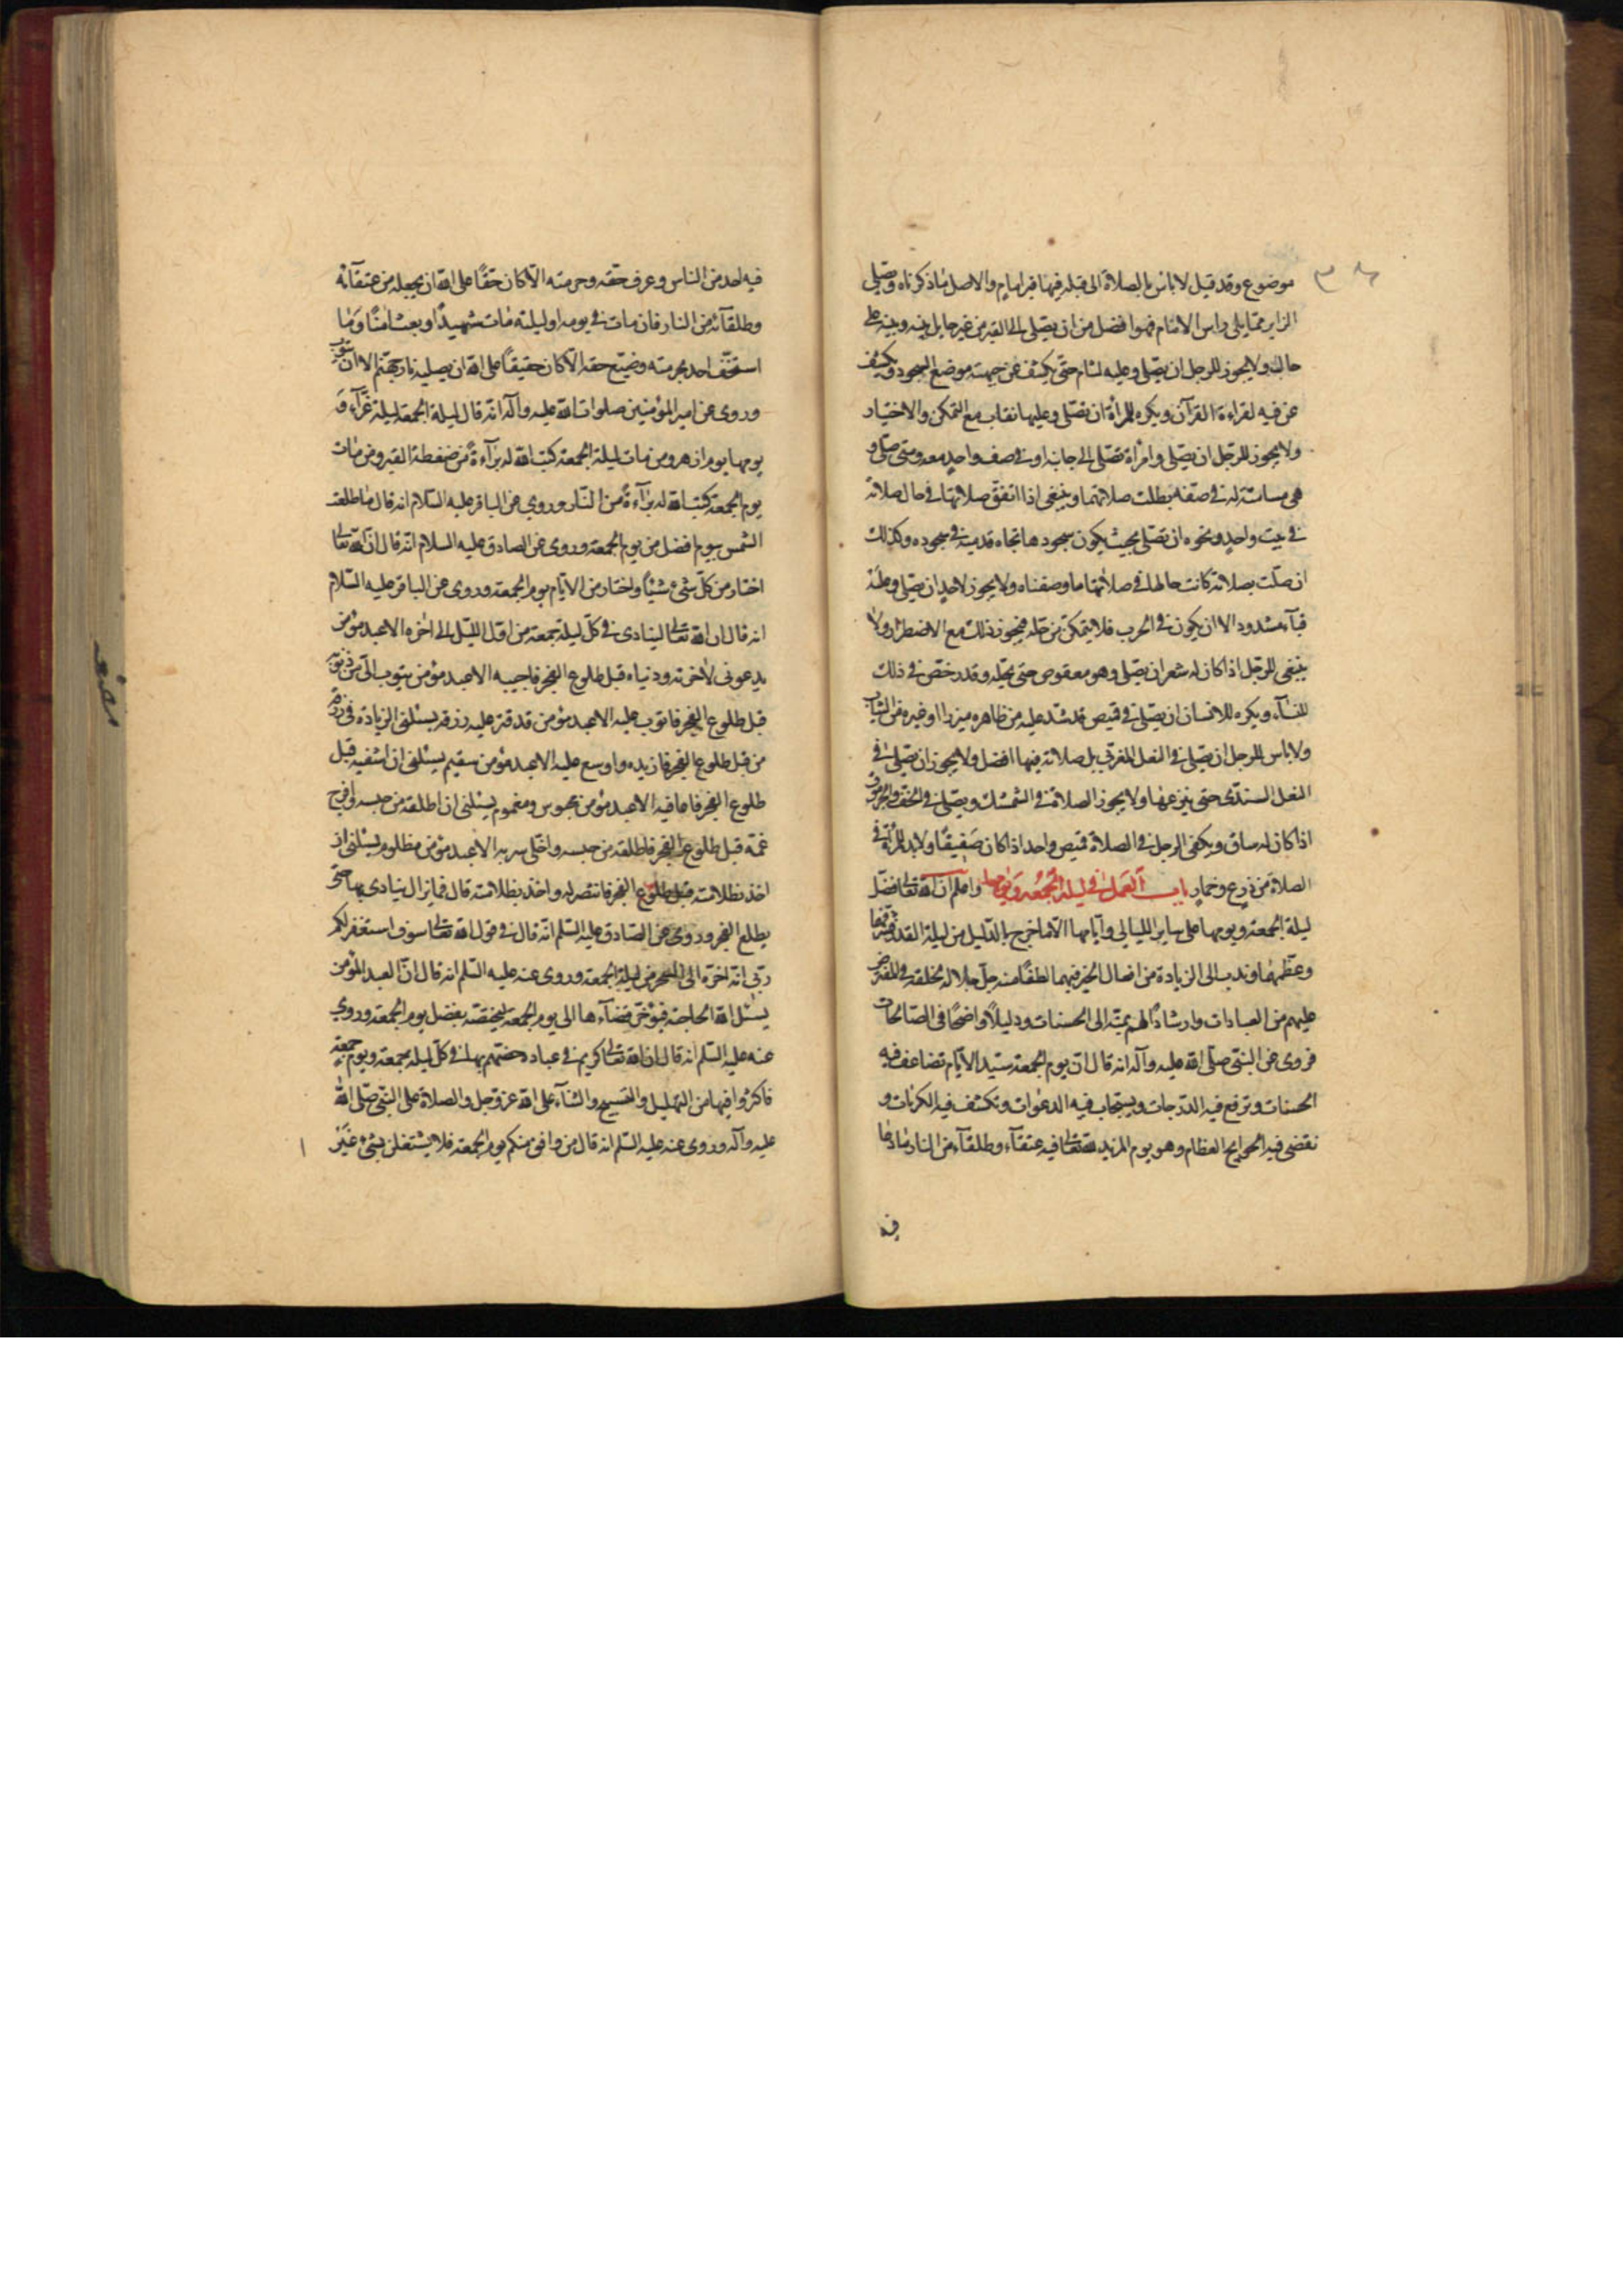 موضوع وقد قيل لا باس بالصلاة الى قبلة فيها قبر امام والاصل ماذكرناه ويصلي
الزاير ممايلي راس الامام فهو افضل من ان يصلي الى القبر من غير حايل بينه وبينه على
حال ولا يجوز للرجل ان يصلي وعليه لثام حتى يكشف عن جبهته موضع السجود ويكشف
عن فيه لقراءة القرآن ويكره للمرأة ان تصلي وعليها نقاب مع التمكن والاختيار
ولا يجوز للرجل ان يصلي وامرأة تصلي الى جانبه او في صف واحد معه ومتى صلى و
هي مسامتة له في صفه بطلت صلاتهما وينبغي اذا اتفق صلاتها في حال صلاته
في بيت واحد ونحوه ان تصلي بحيث يكون سجودها تجاه قدميه في سجوده وكذلك
ان صلت بصلاته كانت حالها في صلاتهما ما وصفناه ولا يجوز لاحد ان يصلي وعليه
قبآء مشدود الا ان يكون في الحرب فلا يتمكن من حله فيجوز ذلك مع الاضطرار ولا
ينبغي للرجل اذا كان له شعر ان يصلي وهو معقوص حتى يحله وقد رخص في ذلك
للنسآء ويكره للانسان ان يصلي في قميص قد شد عليه من ظاهره ميزرا او غيره من الثياب
ولا باس للرجل ان يصلي في النعل العربي بل صلاته فيها افضل ولا يجوز ان يصلي في
النعل السندي حتى ينزعها ولا يجوز الصلاة في الشمشك ويصلي في الخف والجرموق
اذا كان له ساق ويكفي الرجل في الصلاة قميص واحد اذا كان صفيقًا ولا بد للمرأة في
الصلاة من درع وخمار باب العمل في ليلة الجمعة ويومها واعلم ان الله تعالى فضل
ليلة الجمعة ويومها على ساير الليالي وايامها الا ما خرج بالدليل من ليلة القدر فشرفها
وعظمها وندب الى الزيادة من افعال الخير فيهما لطفًا منه جل جلاله لخلقه في المفترض
عليهم من العبادات وارشادًا لهم يميته الى الحسنات ودليلاً واضحًا في الصالحات
فروي عن النبي صلى الله عليه وآله انه قال ان يوم الجمعة سيد الايام تضاعف فيه
الحسنات وترفع فيه الدرجات ويستجاب فيه الدعوات وتكشف فيه الكربات و
تقضي فيه الحوايج العظام وهو يوم المزيد لله تعالى فيه عتقآء وطلقآء من النار ما دعا
فيه
فيه احد من الناس وعرف حقه وحرمته الا كان حقًا على الله ان يجعله من عتقآئه
وطلقآئه من النار فان مات في يومه او ليلته مات شهيدًا وبعث امنًا وما
استخف احد بحرمته وضيع حقه الا كان حقيقًا على الله ان يصليه نار جهنم الا ان يتوب
وروى عن امير المؤمنين صلوات الله عليه وآله انه قال ليلة الجمعة ليلة غرآء و
يومها يوم ازهر ومن مات ليلة الجمعة كتب الله له برآءة من ضغطة القبر ومن مات
يوم الجمعة كتب الله له برآءة من النار وروي عن الباقر عليه السلام انه قال ما طلعت
الشمس بيوم افضل من يوم الجمعة وروى عن الصادق عليه السلام انه قال ان الله تعالى
اختار من كل شئ شيئًا واختار من الايام يوم الجمعة وروى عن الباقر عليه السلام
انه قال ان الله تعالى لينادي في كل ليلة جمعة من اول الليل الى اخره الا عبد مؤمن
يدعوني لآخرته ودنياه قبل طلوع الفجر فاجيبه الا عبد مؤمن يتوب الي من ذنوبه
قبل طلوع الفجر فاتوب عليه الا عبد مؤمن قد قترت عليه رزقه يسئلني الزيادة في رزقه
من قبل طلوع الفجر فازيده واوسع عليه الا عبد مؤمن سقيم يسئلني ان اشفيه قبل
طلوع الفجر فاعافيه الا عبد مؤمن محبوس ومغموم يسئلني ان اطلقه من حبسه وافرج
غمه قبل طلوع الفجر فاطلقه من حبسه واخلي سربه الا عبد مؤمن مظلوم يسئلني ان
اخذ بظلامته قبل طلوع الفجر فانتصر له واخذ بظلامته قال فما يزال ينادي بها حتى
يطلع الفجر وروى عن الصادق عليه السلم انه قال في قول الله تعالى سوف استغفر لكم
ربي انه اخره الى السحر من ليلة الجمعة وروى عنه عليه السلم انه قال ان العبد المؤمن
يسئل الله الحاجة فيؤخر قضآءها الى يوم الجمعة ليخصه بفضل يوم الجمعة وروي
عنه عليه السلم انه قال ان لله تعالى كريم في عباده خصهم بها في كل ليلة جمعة ويوم جمعة
فاكثروا فيها من التهليل والتسبيح والثنآء على الله عز وجل والصلاة على النبي صلى الله
عليه وآله وروى عنه عليه السلم انه قال من وافق منكم يوم الجمعة فلا يشتغلن بشئ غير